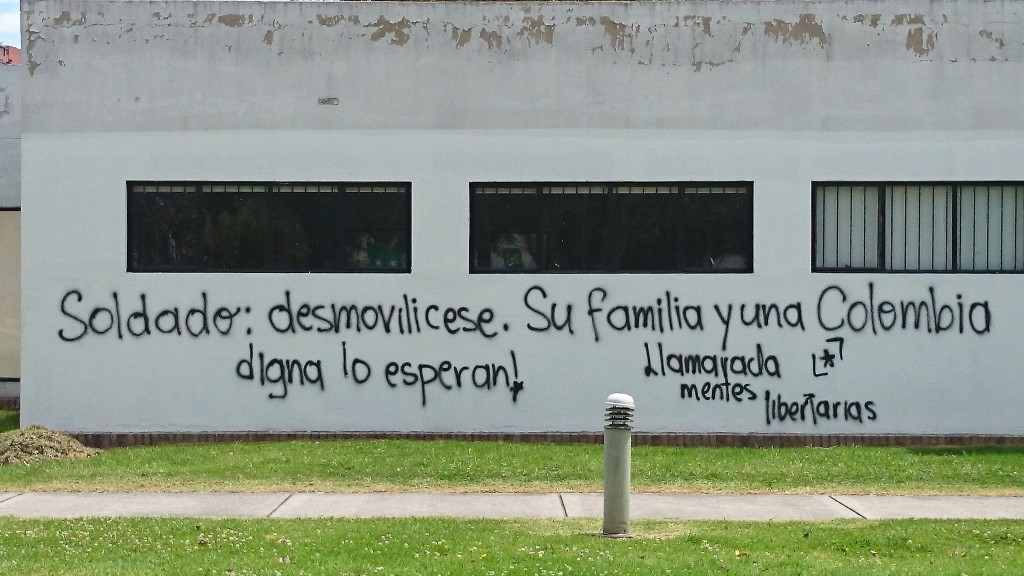 Soldado: desmovilicese. Su familia y una Colombia
digna lo esperan!
Llamarada
mentes
libertarias